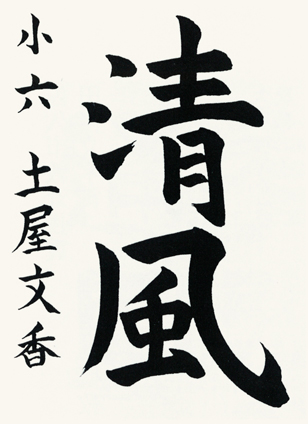 清風
小六 土屋文香